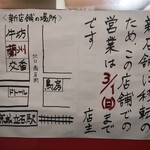 新店舗に移転の
ため この店舗での
営業は3/1(日)まで
です
店主
※新店舗の場所
牛坊
蘭州
交番
ドトール
鳥房
京成立石駅